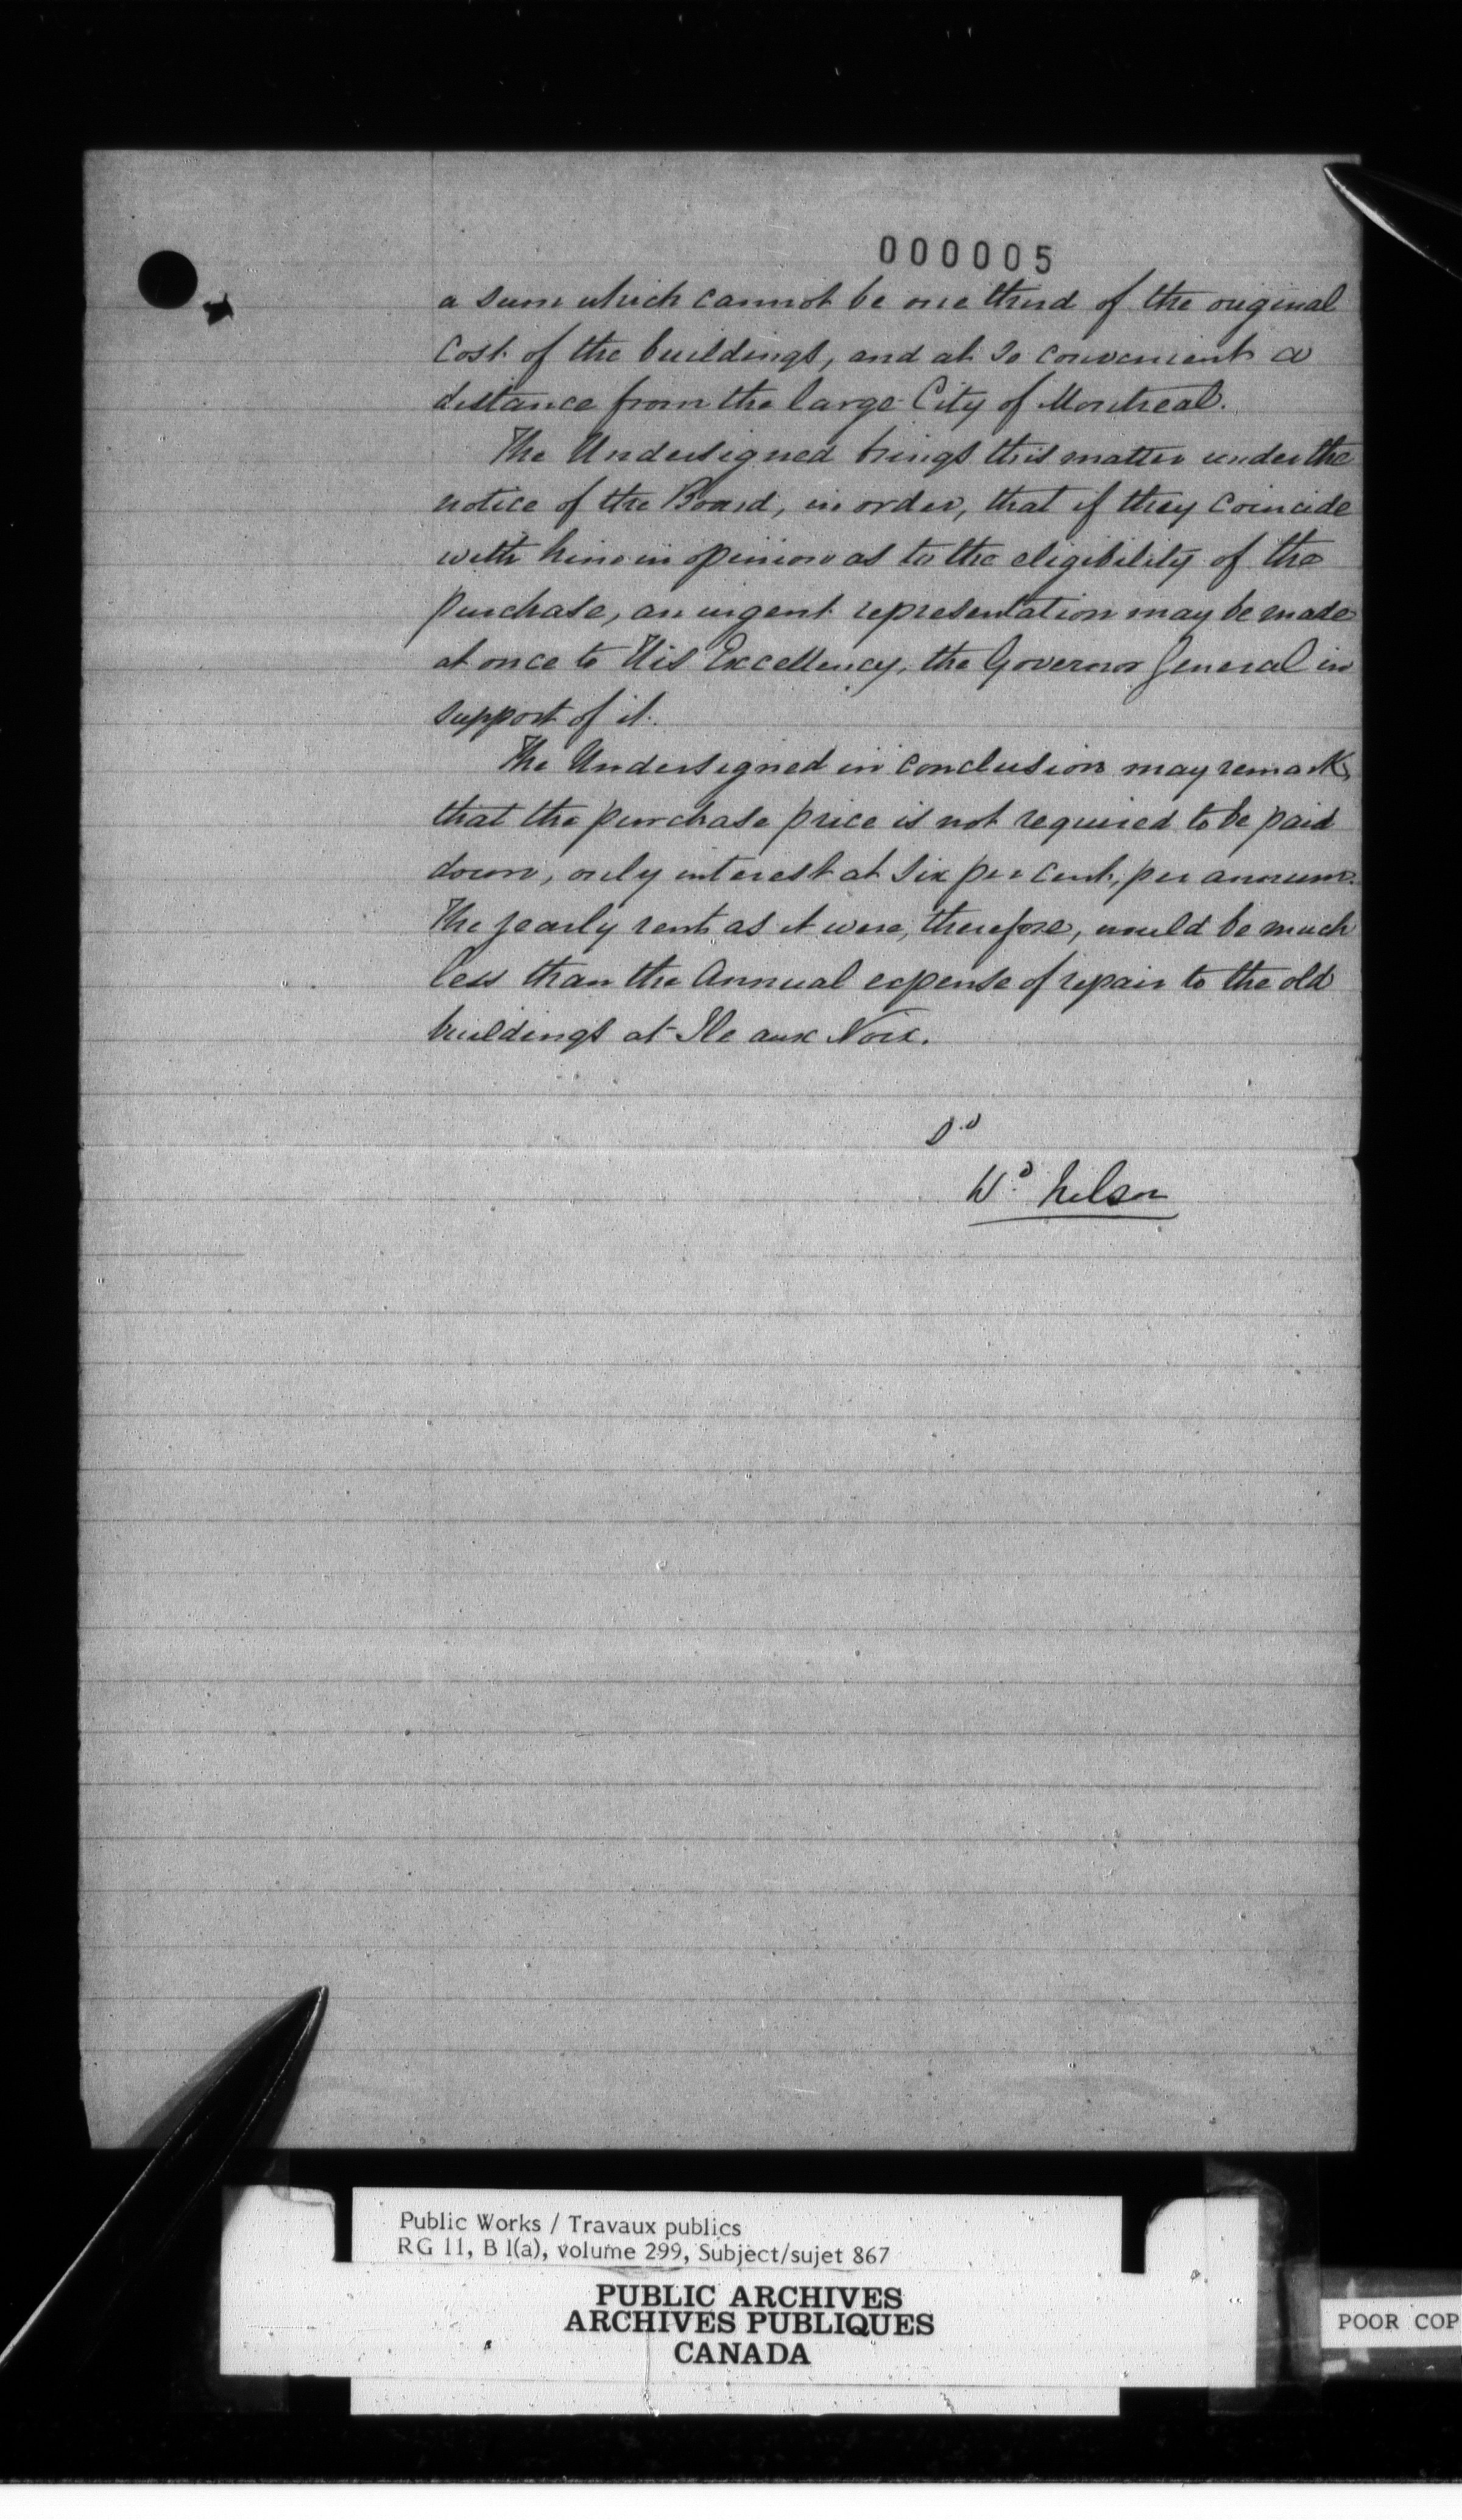 000005
a sum which cannot be one third of the original
cost of the buildings, and at so convenient a
distance from the large City of Montreal.
The Undersigned brings this matter under the
notice of the Board, in order, that if they coincide
with him in opinion as to the eligibility of the
purchase, an urgent representation may be made
at once to His Excellency, the Governor General in
support of it.
The Undersigned in conclusion may remark,
that the purchase price is not required to be paid
down, only interest at six per cent, per annum.
The yearly rent as it were, therefore, would be much
less than the Annual expense of repair to the old
buildings at Ile aux Noix.
Wd Nelson
Public Works / Travaux publics
RG 11, B 1(a), volume 299, Subject/sujet 867
PUBLIC ARCHIVES
ARCHIVES PUBLIQUES
CANADA
POOR COP